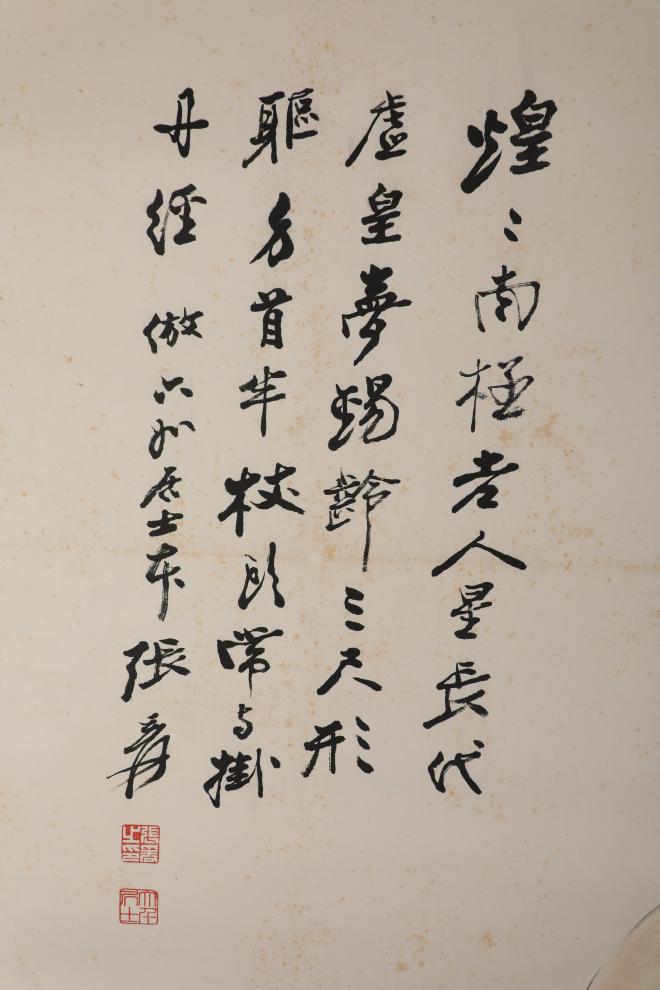 煌〻南極老人星長代
虛皇夢錫齡三尺形
軀方首半杖頭常与掛
丹經 倣六如居士本 張爰
張爰之印
大千居士